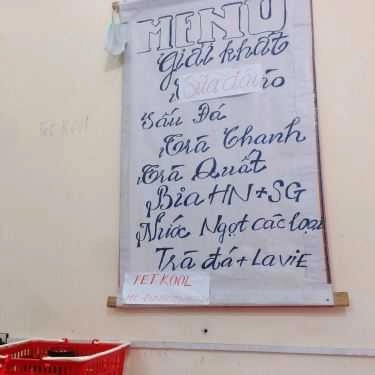 MENU
giải khát
Sữa đá
Sấu Đá
Trà Chanh
Trà Quất
Bia HN+SG
Nước Ngọt các loại
Trà đá + LaViE
PET KOOL